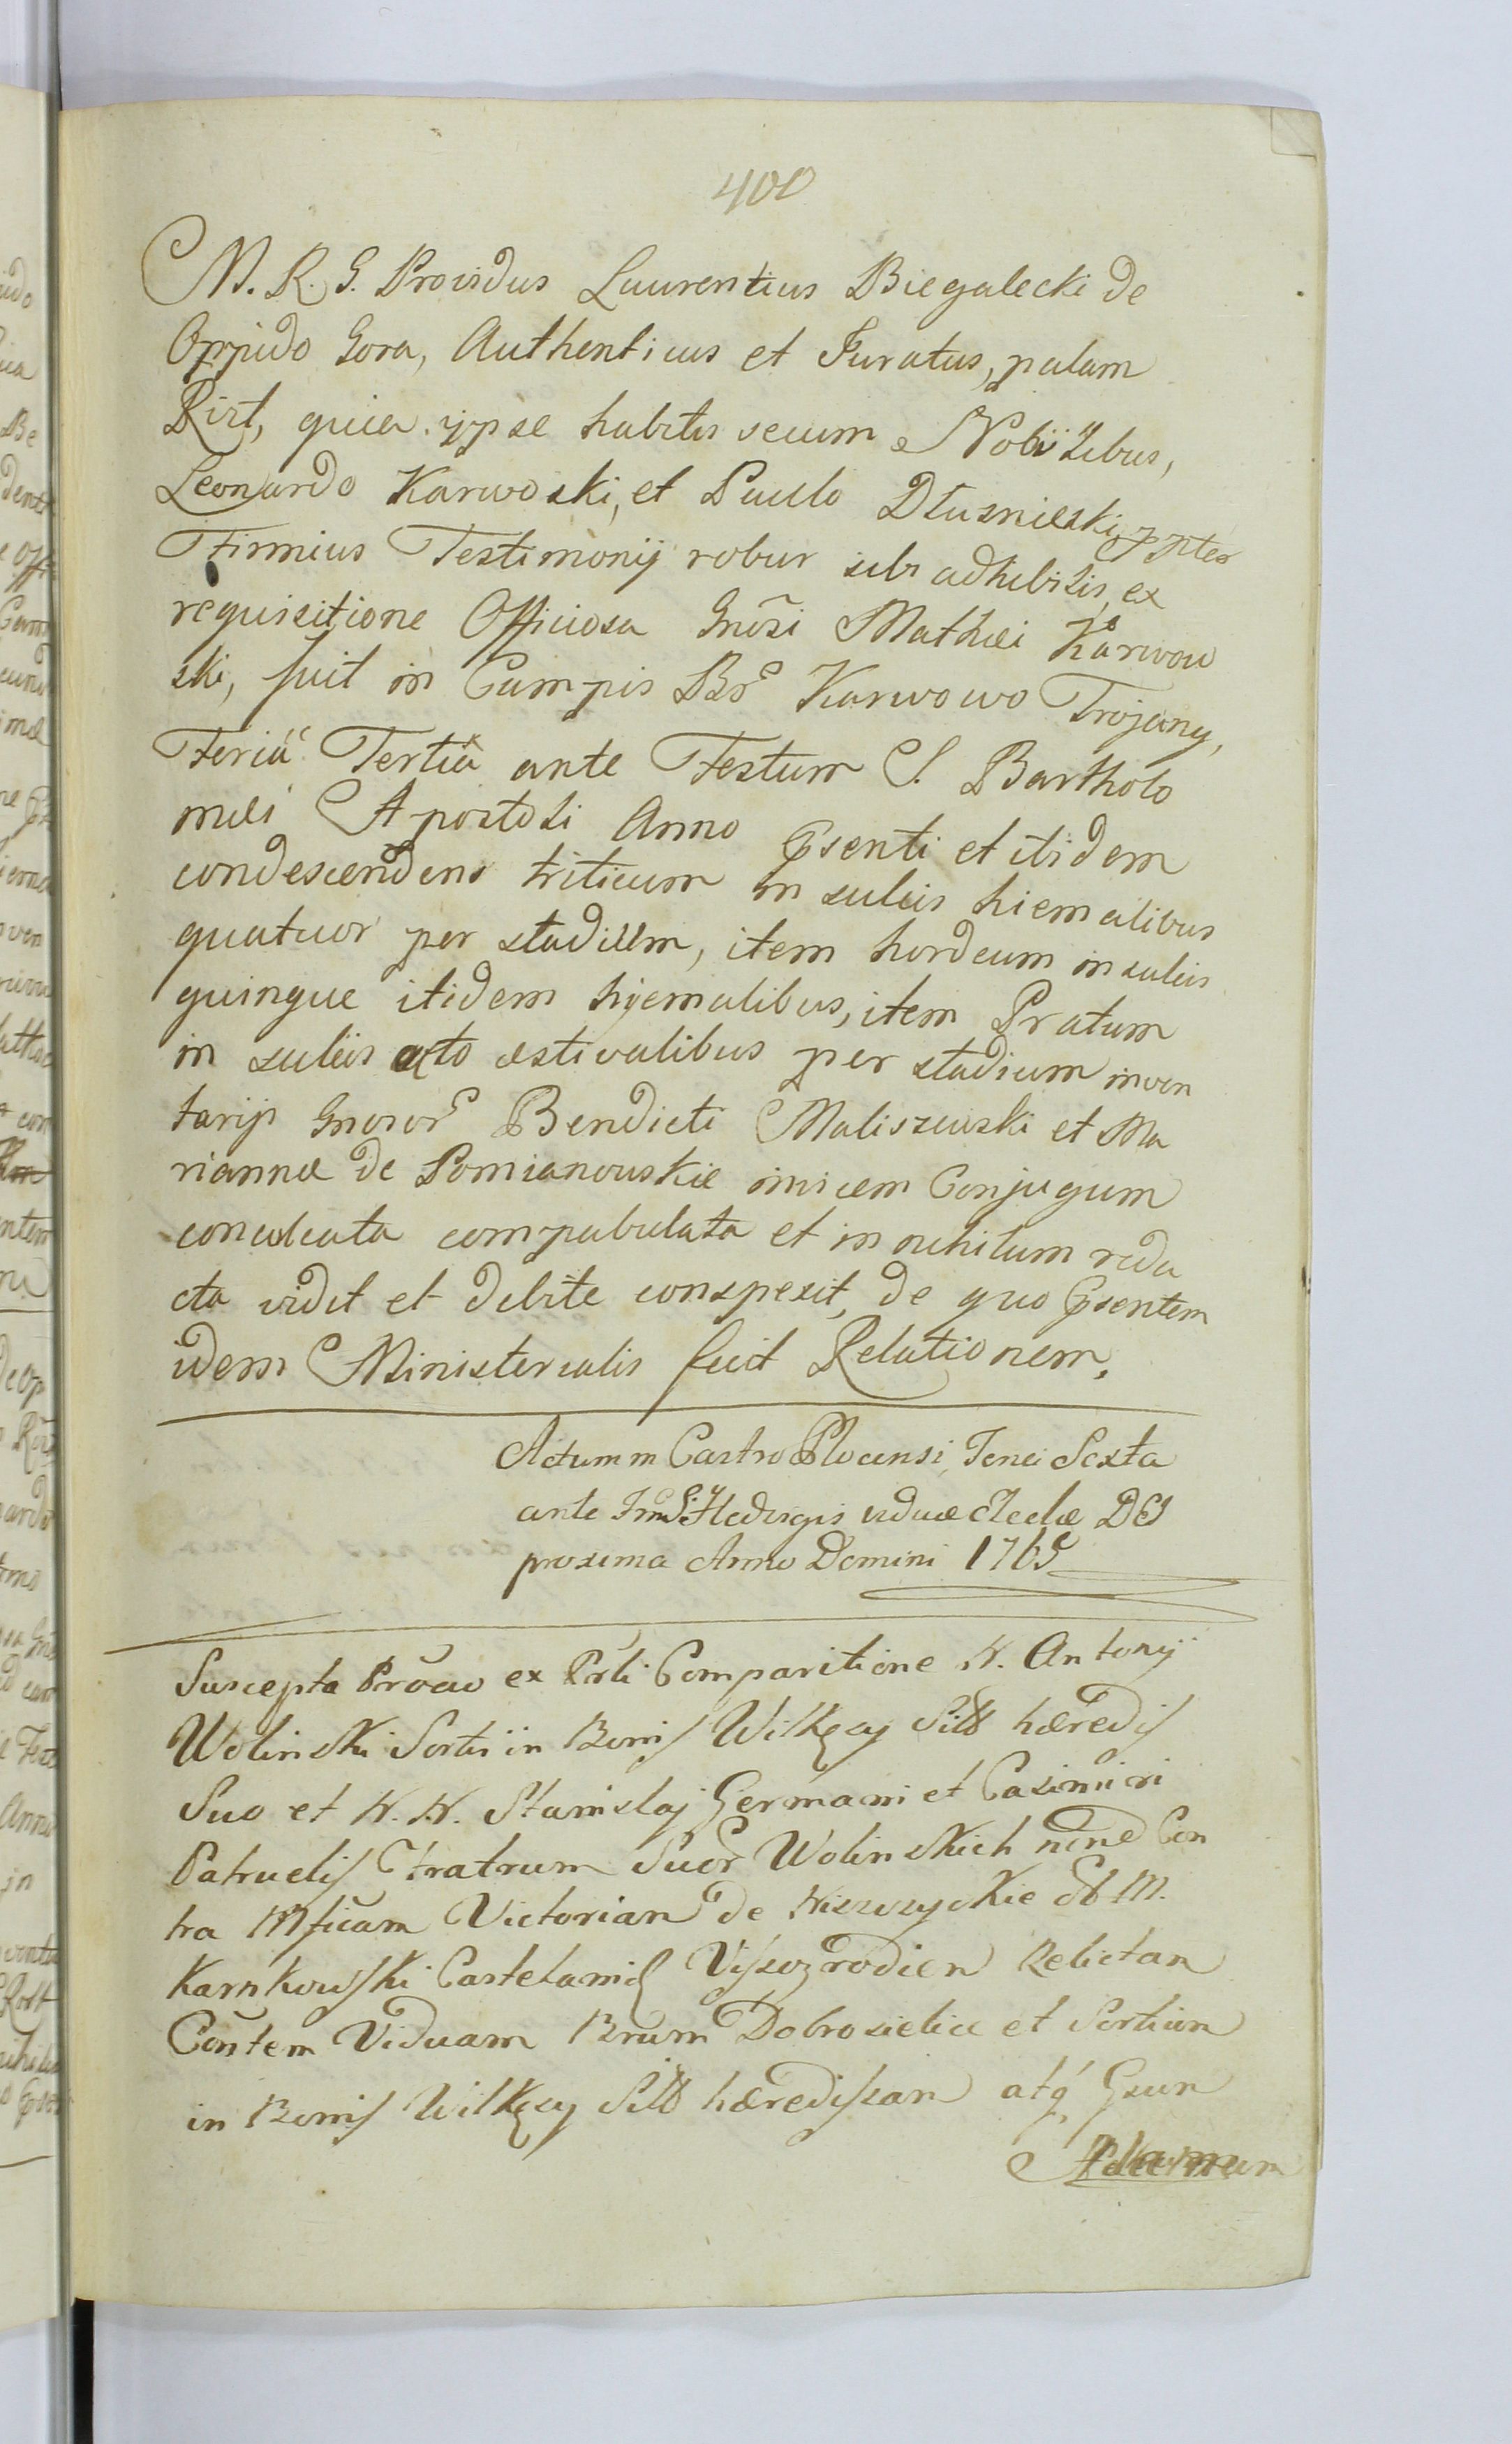 400
M. R. G. Providus Laurentius Biegalecki de
Oppido Gora, Authenticus et Juratus, palam
Rlrt, quia ipse habitis secum Nobilibus,
Leonardo Karwoski, et Paulo Dłusnieski, ppter
Firmius Testimonij robur sibi adhibitis, ex
requisitione Officiosa Gnosi Mathei Karwow
ski, fuit in Campis Br Karwowo Trojany,
Feriâ Tertiâ ante Festum S. Bartholo
mæi Apostoli Anno psenti et itidem
condescendens triticum in suleis hiemalibus
quatuor per stadium, item hordeum in suleis
quinque itidem hyemalibus, item Pratum
in suleis octo æstivalibus per stadium inven
tarijs Gnosor Bendicti Maliszewski et Ma
riannæ de Pomianowskie invicem Conjugum
conculcata compabulata et in nihilum reda
cta vidit et debite conspexit, de quo psentem
idem Ministerialis fecit Relationem.
Actum in Castro Plocensi Feria Sexta
ante Fm S. Hedvigis viduæ Electæ DEI
proxima Anno Domini 1765
Suscepta Procao ex Prli Comparitione N. Antonij
Wolinski Sortis in Bonis Wilkęsy Sitt hæredis
Suo et N. N. Stanislaj Germani et Casimiri
Patruelis Fratrum Suor Wolinskich nōne Con
tra Mficam Victoriam de Niszczyckie Ol M.
Karnkowski Castelanis Viszogrodien Relictam
Contem Viduam Brum Dobrosielice et Sortium
in Bonis Wilkęsy Sitt hæredissam atq Gsum